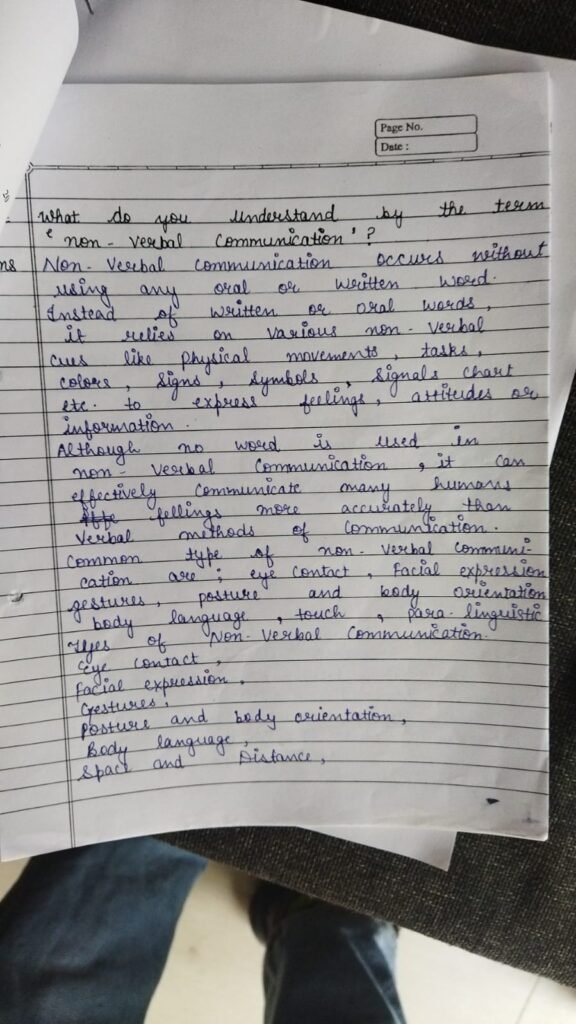 Page No.
Date :
What do you understand by the term
' non - verbal communication ' ?
ns Non - Verbal communication occurs without
using any oral or written word.
Instead of written or oral words,
it relies on various non - verbal
cues like physical movements, tasks,
colors, signs, symbols, signals chart
etc. to express feelings, attitudes or
information.
Although no word is used in
non - verbal communication, it can
effectively communicate many humans
fellings more accurately than
verbal methods of communication.
Common type of non - verbal communi-
cation are ; eye contact, facial expression
gestures, posture and body orientation
body language, touch, para - linguistic
Types of Non - Verbal communication.
Eye contact,
Facial expression,
Gestures,
Posture and body orientation,
Body language,
Space and Distance,